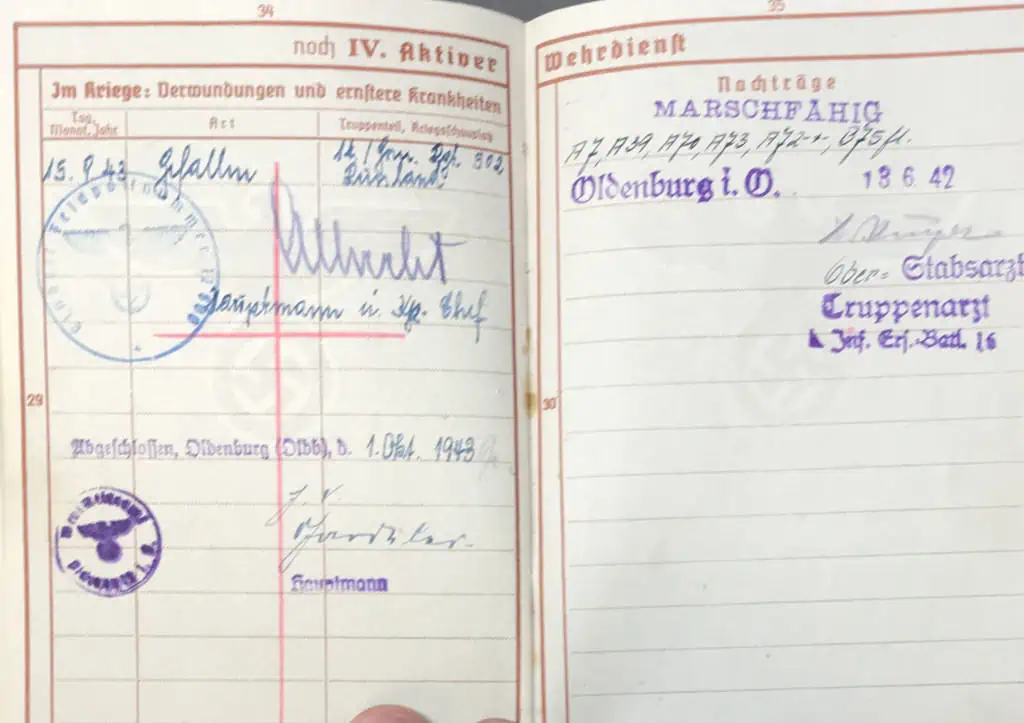 34
noch IV. Aktiver
Im Kriege: Verwundungen und ernstere Krankheiten
Tag, Monat, Jahr
Art
Truppenteil, Kriegsschauplatz
15. 9 43 Gefallen 12./Gren. Rgt. 502,
Rußland
Albrecht
Hauptmann u. Kp. Chef
29
Abgeschlossen, Oldenburg (Oldb), d. 1. Okt. 1943
J. V.
Hauptmann
35
Wehrdienst
Nachträge
MARSCHFÄHIG
A7, A39, A70, A73, A72
Oldenburg i. O. 13 6. 42
Ober= Stabsarzt
Truppenarzt
Inf. Ers.-Batl. 16
30